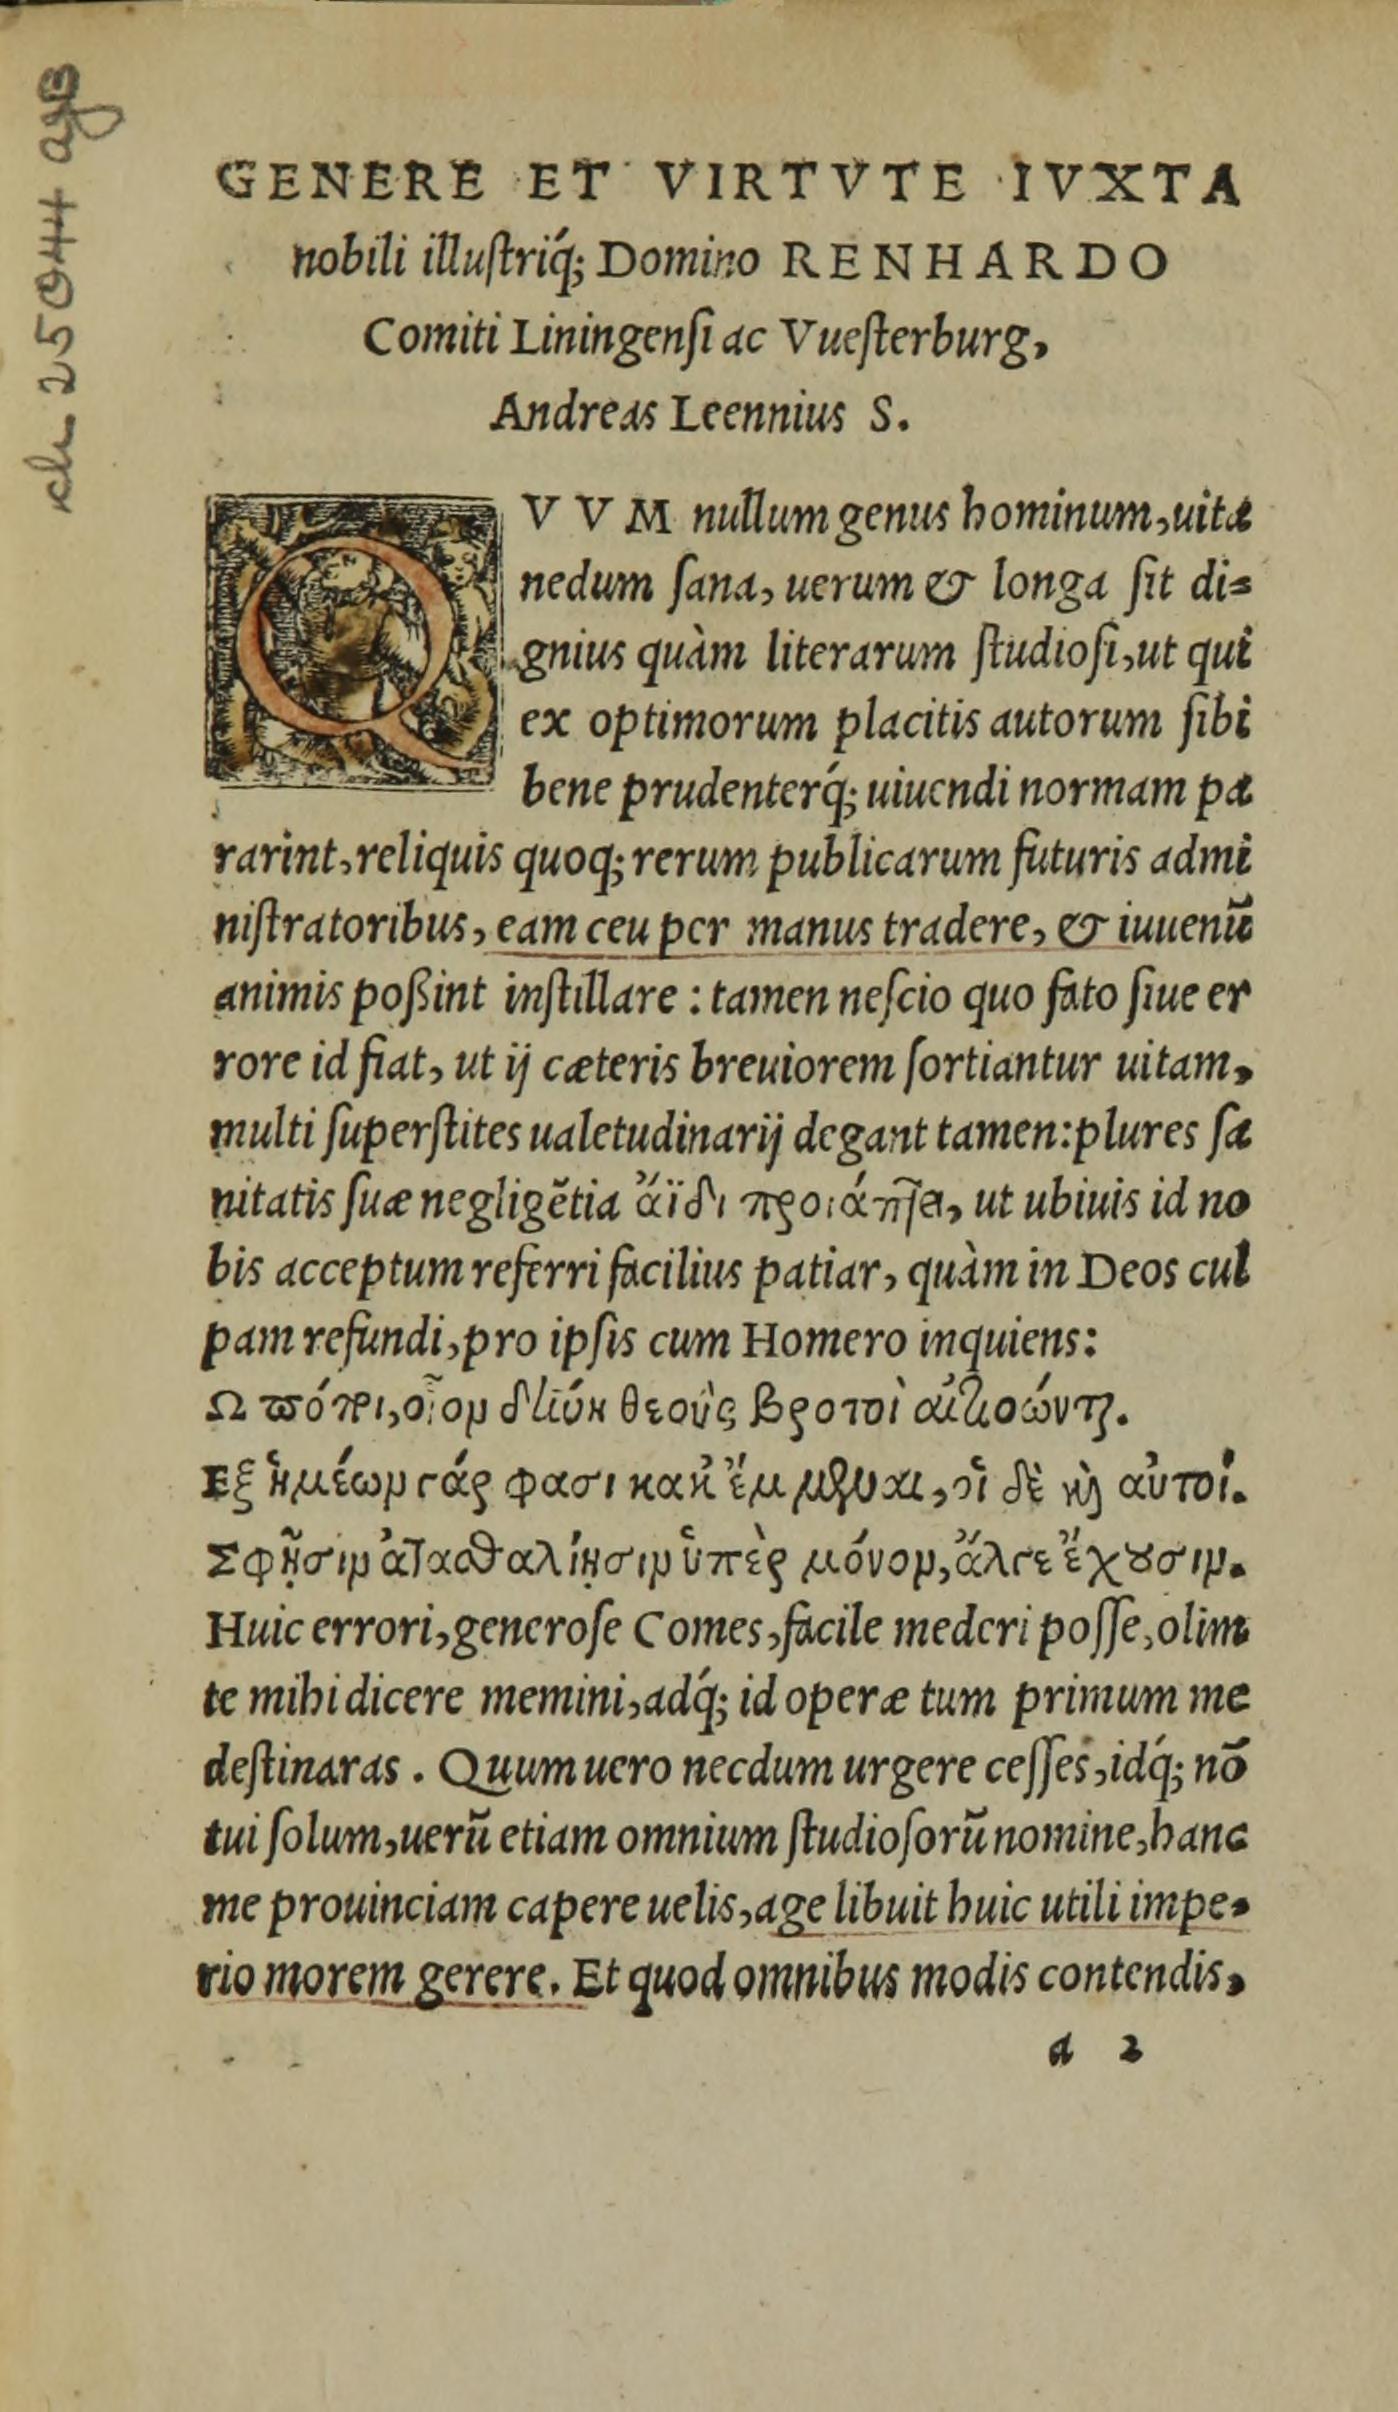 GENERE ET VIRTVTE IVXTA
nobili illuſtriq́; Domino RENHARDO
Comiti Liningenſi ac Vueſterburg,
Andreas Leennius S.
QVVM nullum genus hominum, uitæ
nedum ſana, uerum & longa ſit di=
gnius quàm literarum ſtudioſi, ut qui
ex optimorum placitis autorum ſibi
bene prudenterq́; uiuendi normam pa
rarint, reliquis quoq; rerum publicarum futuris admi
niſtratoribus, eam ceu per manus tradere, & iuuenū
animis poßint inſtillare : tamen neſcio quo fato ſiue er
rore id fiat, ut ij cæteris breuiorem ſortiantur uitam,
multi ſuperſtites ualetudinarij degant tamen: plures ſa
nitatis ſuæ negligẽtia ἄϊδι, ut ubiuis id no
bis acceptum referri facilius patiar, quàm in Deos cul
pam refundi, pro ipſis cum Homero inquiens:
Ω πόποι, οἷον δὴ νύ θεοὺς βροτοὶ αἰτιοώνται.
Εξ ἡμέων γάρ φασι κακ' ἔμμεναι, οἱ δὲ καὶ αὐτοί.
Σφῇσιν ἀτασθαλίῃσιν ὑπὲρ μόνον, ἄλγε ἔχουσιν.
Huic errori, generoſe Comes, facile mederi poſſe, olim
te mihi dicere memini, adq́; id operæ tum primum me
deſtinaras. Quum uero necdum urgere ceſſes, idq́; nō
tui ſolum, uerū etiam omnium ſtudioſorū nomine, hanc
me prouinciam capere uelis, age libuit huic utili impe-
rio morem gerere. Et quod omnibus modis contendis,
a 2
25044